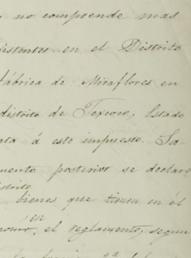 y no comprende mas
existentes en el Distrito
fábrica de Miraflores en
distrito de Texcoco, Estado
ata á este impuesto. La
mento posterior se declare
bienes que tienen en el
en
el reglamento, segun